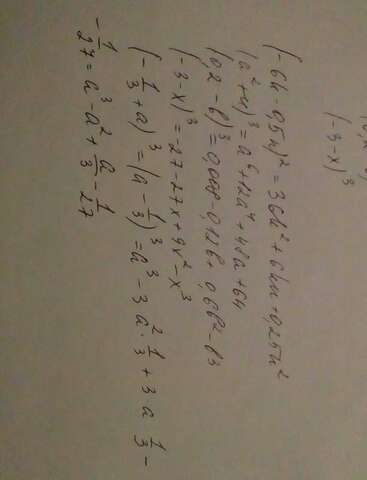 (-3-x)³
(-6k-0,5n)² = 36k²+6kn+0,25n²
(a²+4)³ = a⁶+12a⁴+48a+64
(0,2-b)³ = 0,008-0,12b+0,6b²-b3
(-3-x)³ = -27-27x+9x²-x³
(-1/3+a)³ = (a-1/3)³ = a³-3a²·1/3+3·a 1/3-
-1/27 = a³-a²+a/3-1/27